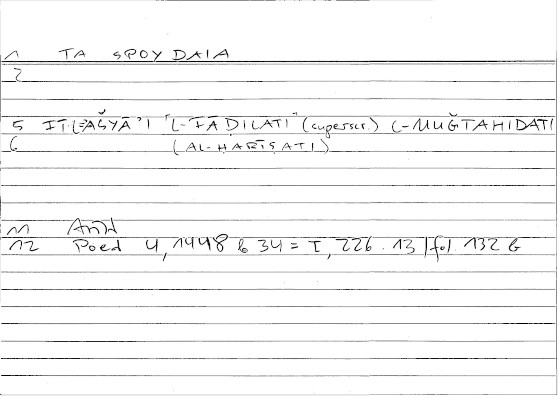 1 TA SPOYDAIA
2
5 IT. L-AŠYĀ'I "L-FĀḌILATI" (superscr.) L-MUĞTAHIDATI
6 (AL-ḤARĪṢATI)
11
12 Poet 4, 1448 b 34 = I, 226.13 / fol. 132 b